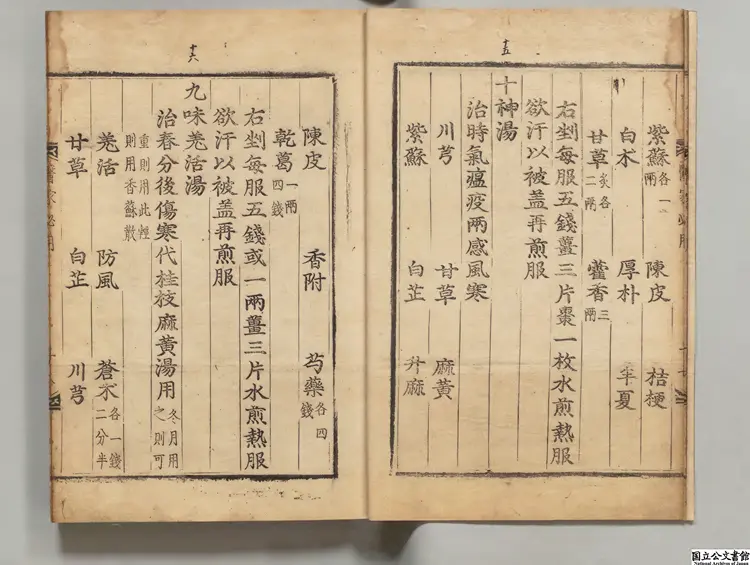 十五
紫蘇各一兩 陳皮 桔梗
白朮 厚朴 半夏
甘草炙各二兩 藿香三兩
右剉每服五錢薑三片棗一枚水煎熱服
欲汗以被盖再煎服
十神湯
治時氣瘟疫兩感風寒
川芎 甘草 麻黄
紫蘇 白芷 升麻
十六
陳皮 香附 芍藥各四錢
乾葛一兩四錢
右剉每服五錢或一兩薑三片水煎熱服
欲汗以被盖再煎服
九味羗活湯
治春分後傷寒代桂枝麻黄湯用冬月用之則可
重則用此輕則用香蘇散
羗活 防風 蒼朮各一錢二分半
甘草 白芷 川芎
国立公文書館
National Archives of Japan